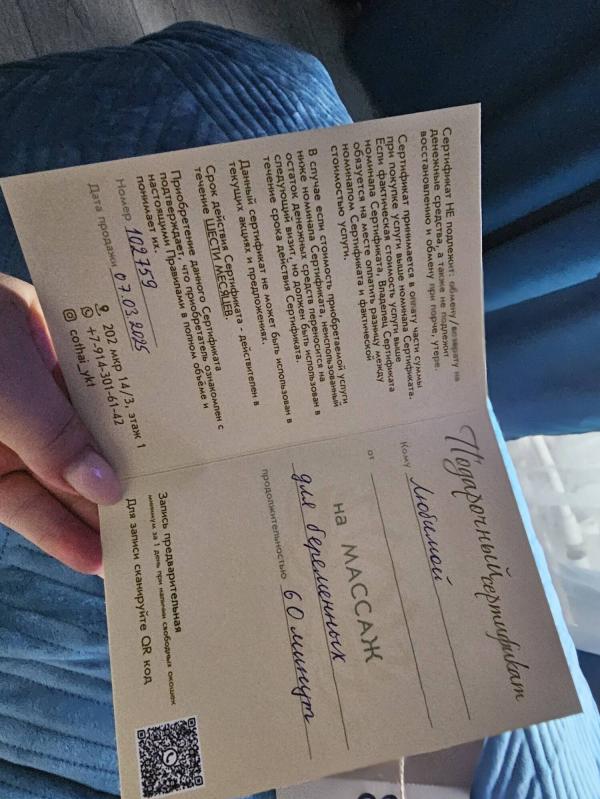 Сертификат НЕ подлежит: обмену / возврату на
денежные средства, а также не подлежит
восстановлению и обмену при порче, утере.
Сертификат принимается в оплату части суммы
при покупке услуги выше номинала Сертификата.
Если фактическая стоимость услуги выше
номинала Сертификата, Владелец Сертификата
обязуется на месте оплатить разницу между
номиналом Сертификата и фактической
стоимостью услуги.
В случае если стоимость приобретаемой услуги
ниже номинала Сертификата, неиспользованный
остаток денежных средств переносится на
следующий визит, но должен быть использован в
течение срока действия Сертификата.
Данный сертификат не может быть использован в
текущих акциях и предложениях.
Срок действия Сертификата - действителен в
течение ШЕСТИ МЕСЯЦЕВ.
Приобретение данного Сертификата
подтверждает, что приобретатель ознакомлен с
настоящими Правилами в полном объёме и
понимает их.
Номер 102759
Дата продажи 07.03.2025
202 мкр 14/3, этаж 1
+7-914-301-61-42
cothai_ykt
Подарочный сертификат
Кому Любимой
от
на МАССАЖ
для беременных
продолжительностью 60 минут
Запись предварительная
минимум за 1 день при наличии свободных окошек
Для записи сканируйте QR код